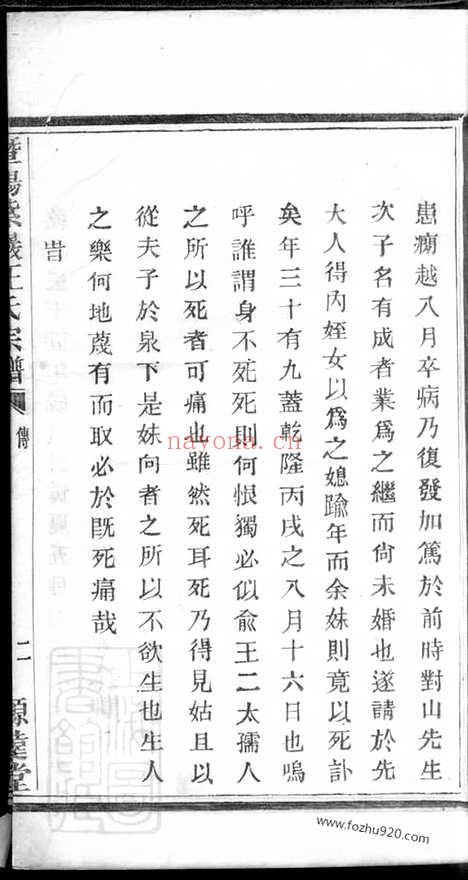 患痢越八月卒病乃復發加篤於前時對山先生
次子名有成者業爲之繼而尙未婚也遂請於先
大人得內姪女以爲之媳踰年而余妹則竟以死訃
矣年三十有九蓋乾隆丙戌之八月十六日也嗚
呼誰謂身不死死則何恨獨必似俞王二太孺人
之所以死者可痛也雖然死耳死乃得見姑且以
從夫子於泉下是妹向者之所以不欲生也生人
之樂何地蔑有而取必於旣死痛哉
旹
暨陽紫巖王氏宗譜
傳
二
源遠堂
nayona.cn
www.fozhu920.com